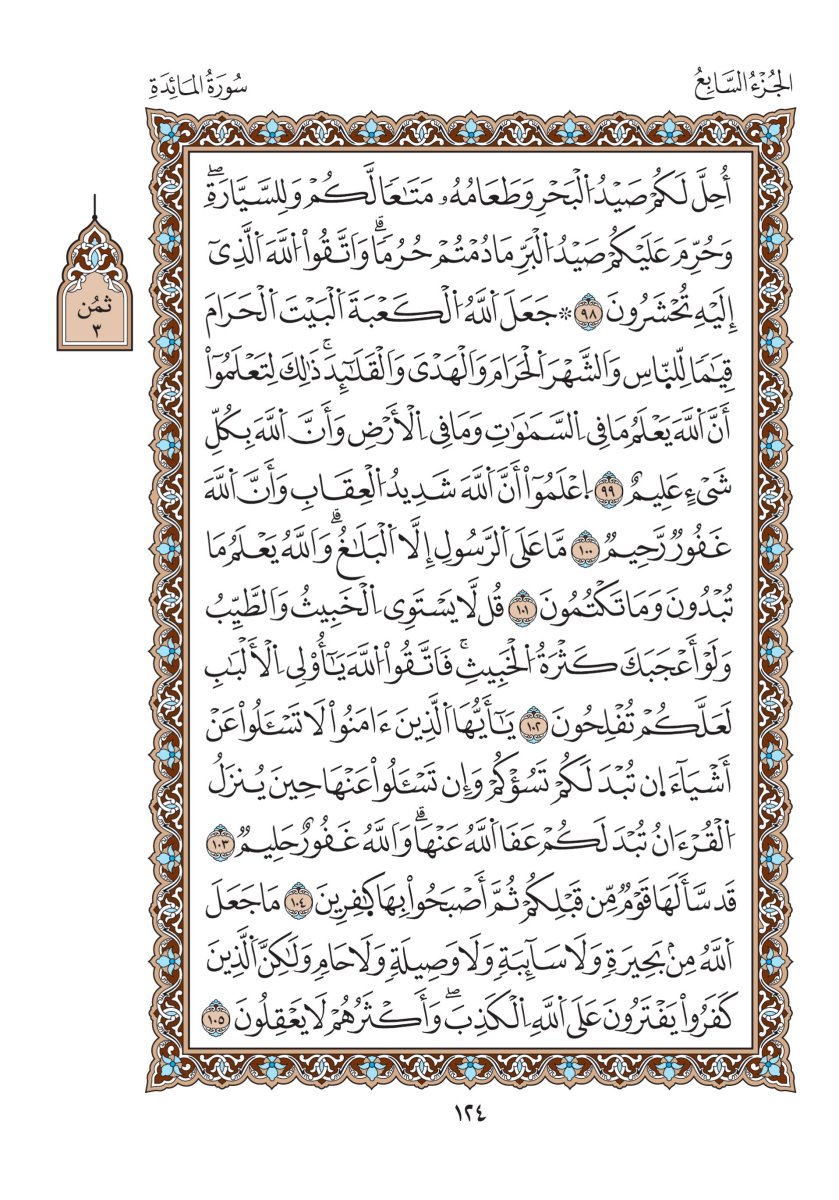 الجُزْءُ السَّابِعُ
سُورَةُ المَائِدَةِ
أُحِلَّ لَكُمْ صَيْدُ اُ۬لْبَحْرِ وَطَعَامُهُۥ مَتَٰعاٗ لَّكُمْ وَلِلسَّيَّارَةِۖ
وَحُرِّمَ عَلَيْكُمْ صَيْدُ اُ۬لْبَرِّ مَا دُمْتُمْ حُرُماٗۗ وَاتَّقُواْ اُ۬للَّهَ اَ۬لَّذِىٓ
إِلَيْهِ تُحْشَرُونَ ٩٨ ۞ جَعَلَ اَ۬للَّهُ اُ۬لْكَعْبَةَ اَ۬لْبَيْتَ اَ۬لْحَرَامَ
ثمُن
٣
قِيَٰماٗ لِّلنَّاسِ وَالشَّهْرَ اَ۬لْحَرَامَ وَالْهَدْىَ وَالْقَلَٰٓئِدَۚ ذَٰلِكَ لِتَعْلَمُوٓاْ
أَنَّ اَ۬للَّهَ يَعْلَمُ مَا فِى اِ۬لسَّمَٰوَٰتِ وَمَا فِى اِ۬لْأَرْضِ وَأَنَّ اَ۬للَّهَ بِكُلِّ
شَىْءٍ عَلِيمٌ ٩٩ اِ۪عْلَمُوٓاْ أَنَّ اَ۬للَّهَ شَدِيدُ اُ۬لْعِقَابِ وَأَنَّ اَ۬للَّهَ
غَفُورٞ رَّحِيمٞ ١٠٠ مَّا عَلَى اَ۬لرَّسُولِ إِلَّا اَ۬لْبَلَٰغُۗ وَاللَّهُ يَعْلَمُ مَا
تُبْدُونَ وَمَا تَكْتُمُونَ ١٠١ قُل لَّا يَسْتَوِى اِ۬لْخَبِيثُ وَالطَّيِّبُ
وَلَوْ أَعْجَبَكَ كَثْرَةُ اُ۬لْخَبِيثِۚ فَاتَّقُواْ اُ۬للَّهَ يَٰٓأُوْلِى اِ۬لْأَلْبَٰبِ
لَعَلَّكُمْ تُفْلِحُونَ ١٠٢ يَٰٓأَيُّهَا اَ۬لَّذِينَ ءَامَنُواْ لَا تَسْـَٔلُواْ عَنْ
أَشْيَآءَ ا۪ن تُبْدَ لَكُمْ تَسُؤْكُمْ وَإِن تَسْـَٔلُواْ عَنْهَا حِينَ يُنزَلُ
اُ۬لْقُرْءَانُ تُبْدَ لَكُمْ عَفَا اَ۬للَّهُ عَنْهَاۗ وَاللَّهُ غَفُورٌ حَلِيمٞ ١٠٣
قَد سَّأَلَهَا قَوْمٞ مِّن قَبْلِكُمْ ثُمَّ أَصْبَحُواْ بِهَا كٰ۪فِرِينَ ١٠٤ مَا جَعَلَ
اَ۬للَّهُ مِنۢ بَحِيرَةٖ وَلَا سَآئِبَةٖ وَلَا وَصِيلَةٖ وَلَا حَامٖ وَلَٰكِنَّ اَ۬لَّذِينَ
كَفَرُواْ يَفْتَرُونَ عَلَى اَ۬للَّهِ اِ۬لْكَذِبَۖ وَأَكْثَرُهُمْ لَا يَعْقِلُونَ ١٠٥
١٢٤